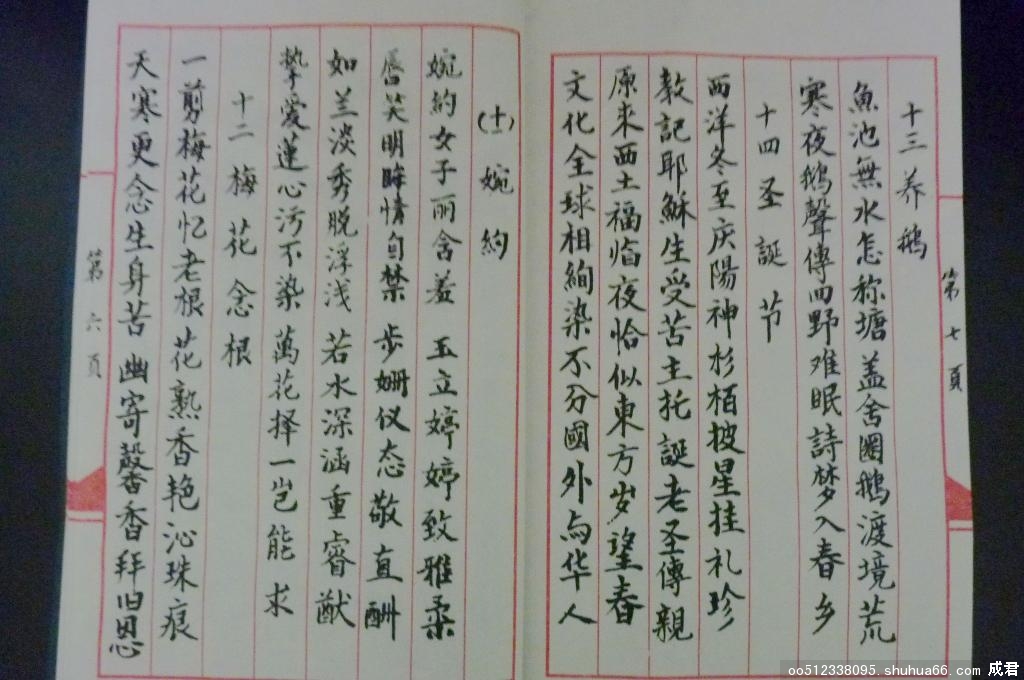 十三 养鹅
魚池無水怎称塘 盖舍圈鹅渡境荒
寒夜鹅聲傳四野 难眠詩梦入春乡
十四 圣誕节
西洋冬至庆陽神 杉栢披星挂礼珍
教記耶穌生受苦 主托誕老圣傳親
原来西土福临夜 恰似東方岁望春
文化全球相絢染 不分國外与华人
第七頁
(十一) 婉約
婉約女子丽含羞 玉立婷婷致雅柔
唇笑明眸情自禁 步姗仪态敬直酬
如兰淡秀脱浮浅 若水深涵重睿猷
挚愛蓮心污不染 萬花择一岂能求
十二 梅花念根
一剪梅花忆老根 花熟香艳沁珠痕
天寒更念生身苦 幽寄馨香拜旧恩
第六頁
oo512338095. shuhua66. com 成君